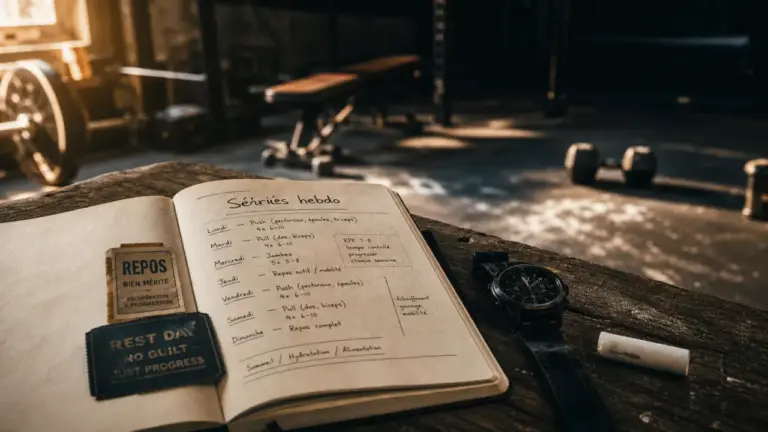 REPOS
BIEN MÉRITÉ
RÉCUPÉRATION
& PROGRESSION
REST DAY
NO GUILT
JUST PROGRESS
Séiriés hebdo
Lundi — Push (pectoraux, épaules, triceps)
4x 6-10
Mardi — Pull (dos, biceps)
4x 6-10
Mercredi — Jambes
5x 5-8
Jeudi — Repos actif / mobilité
Vendredi — Push (pectoraux, épaules)
4x 6-10
Samedi — Pull (dos, biceps)
4x 6-10
Dimanche — Repos complet
Sommeil / Hydratation / Alimentation
RPE 7-8
tempo contrôlé
progresser
chaque semaine
échauffement
mobilité